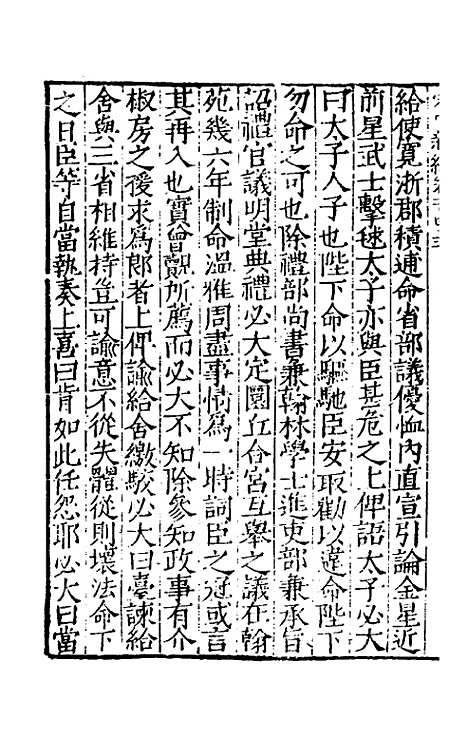 給使寛浙郡積逋命省部議優恤內直宣引論金星近
前星武士擊毬太子亦與臣甚危之上俾語太子必大
曰太子人子也陛下命以驅馳臣安取勸以違命陛下
勿命之可也除禮部尚書兼翰林學士進吏部兼承旨
詔禮官議明堂典禮必大定圜丘合宮互舉之議在翰
苑幾六年制命溫雅周盡事情爲一時詞臣之冠或言
其再入也實曾覿所薦而必大不知除參知政事有介
椒房之援求爲郎者上俾諭給舍繳駁必大曰臺諫給
舍與三省相維持豈可諭意不從失體從則壞法命下
之日臣等自當執奏上喜曰肯如此任怨耶必大曰當